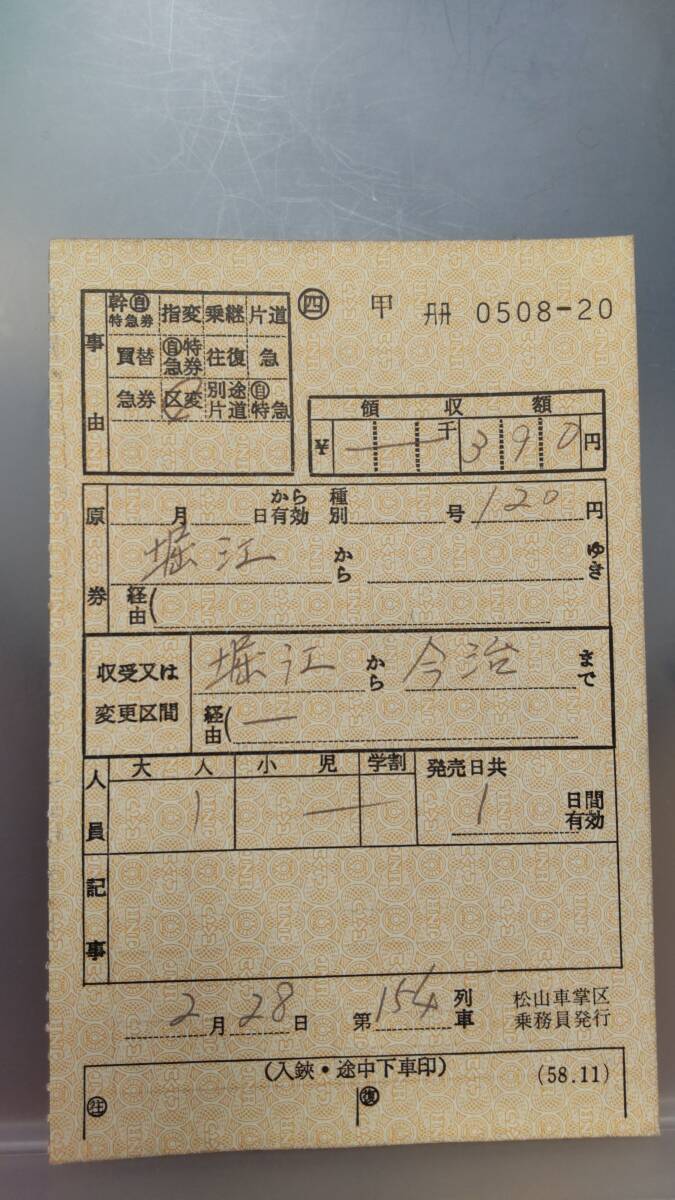 ㊃ 甲 冊 0508-20
事由
幹㊐特急券 指変 乗継 片道
買替 ㊐特急券 往復 急
急券 区変 別途片道 ㊐特急
領収額
¥ 一 千 390 円
原券
月 から日有効 種別 号 120 円
堀江 から ゆき
経由(
収受又は変更区間
堀江 から 今治 まで
経由( ―
人員 大人 小児 学割 発売日共
1 ― 1 日間有効
記事
2月28日 第154列車 松山車掌区乗務員発行
(入鋏・途中下車印) (58.11)
㊟ ㊢